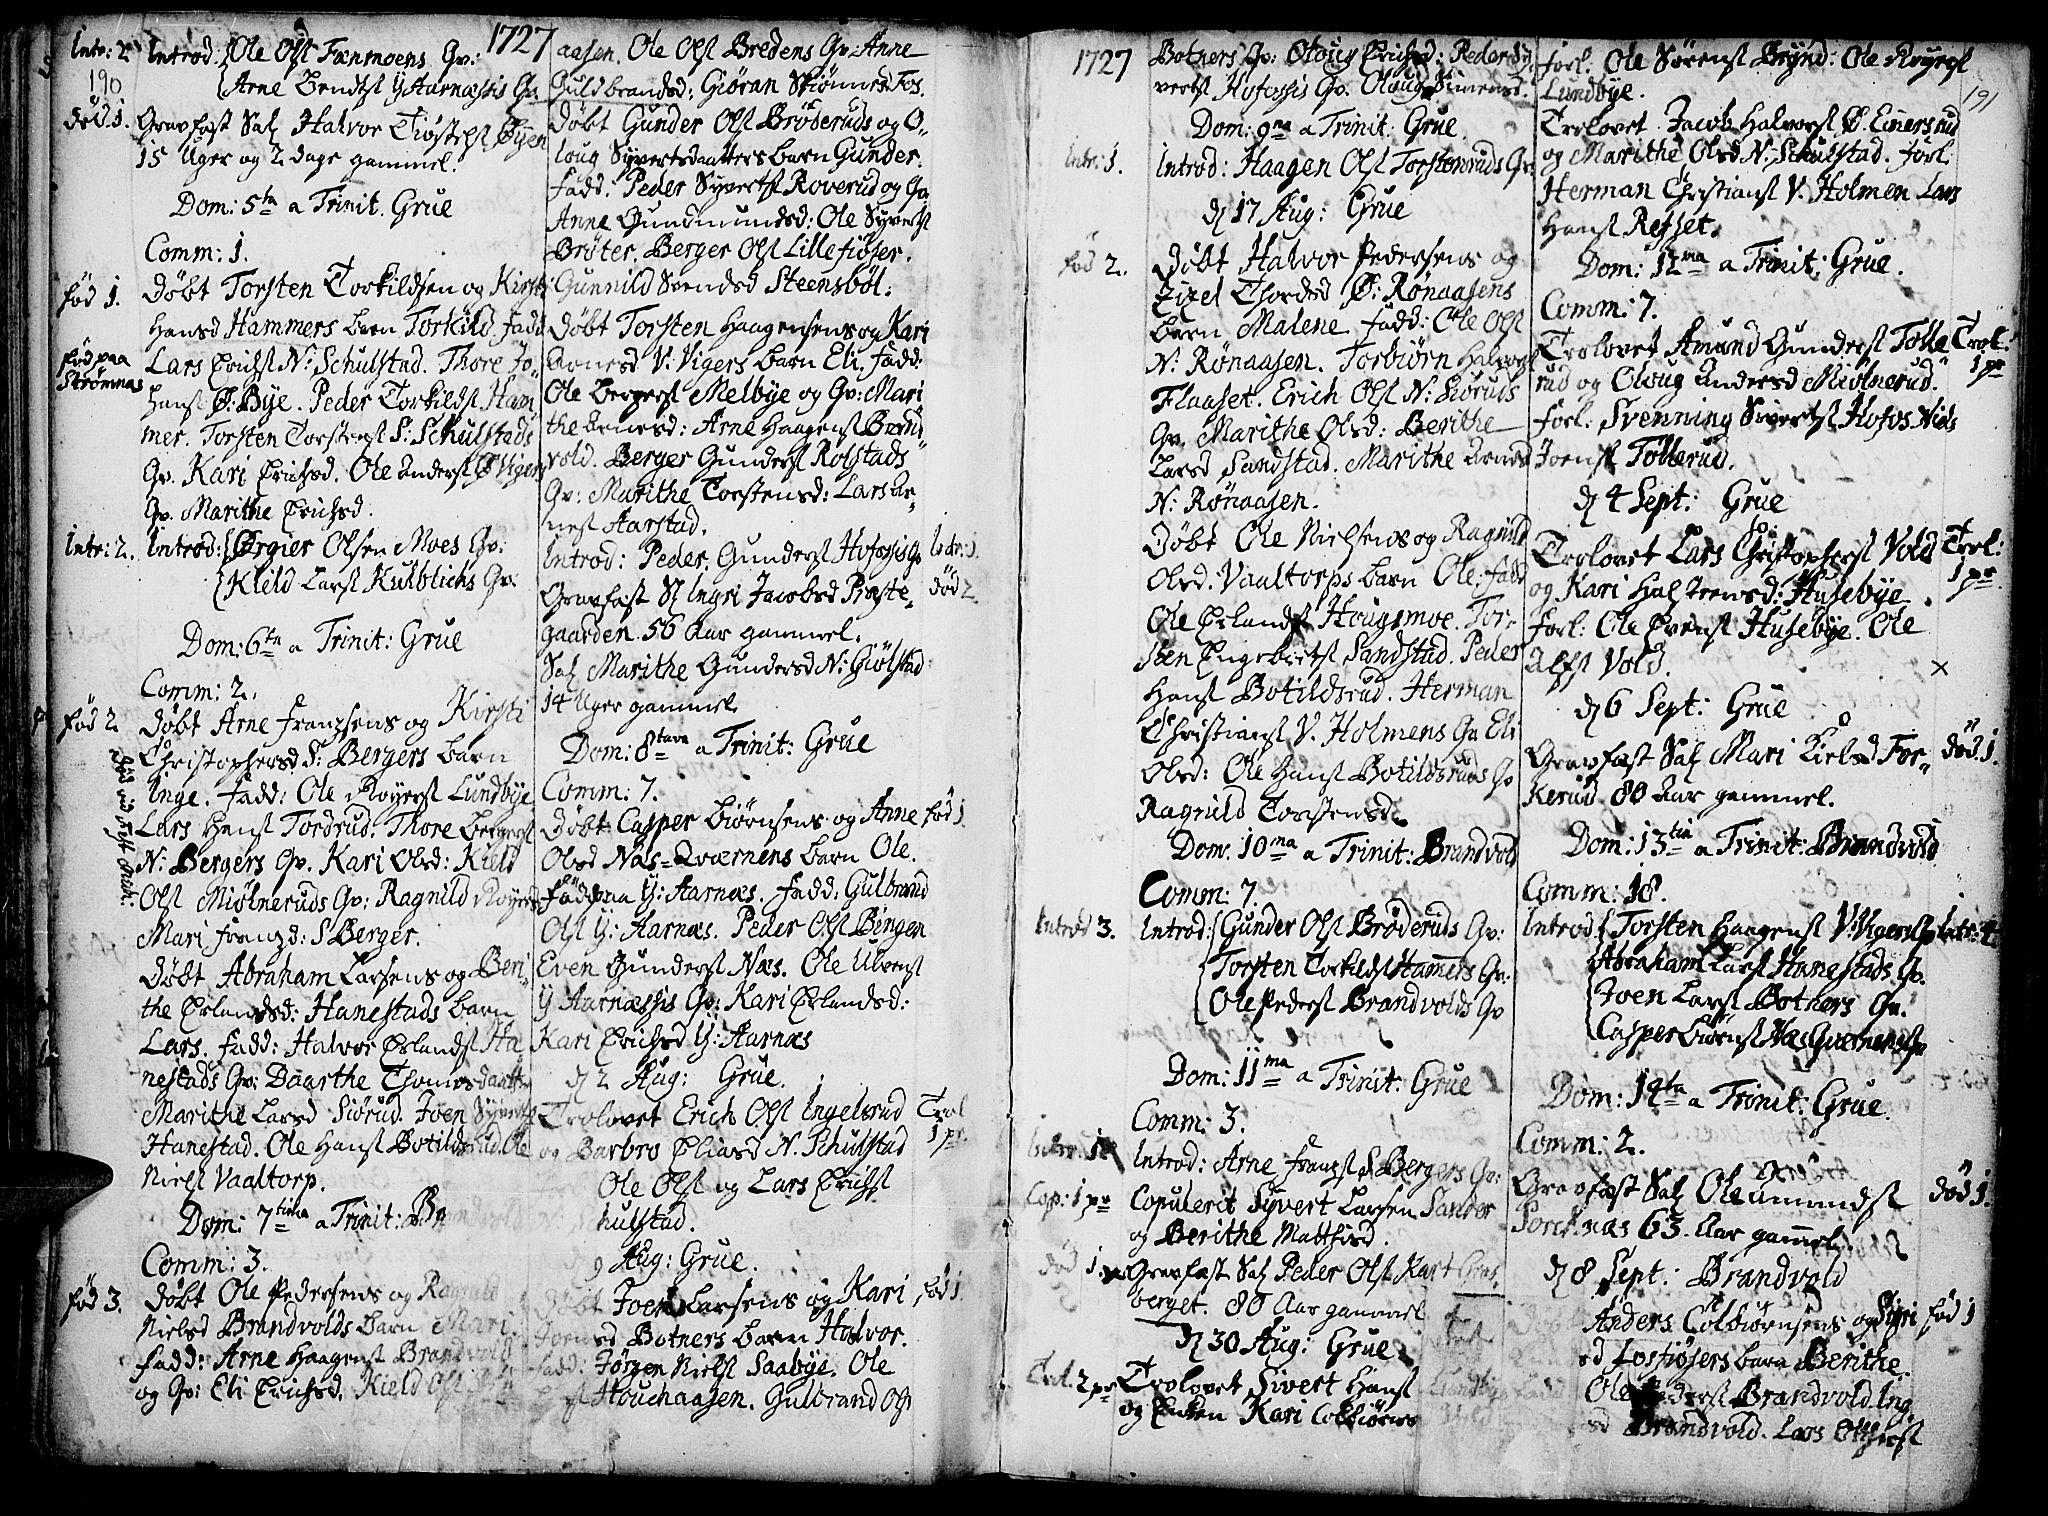 1727
190
Intr: 2
Introd: Ole Olss Fænmoens Qv:
Arne Bendtss Y: Aarnæssis Qv.
død. 1.
Gravfæst Sal Halvor Tiøstelss Øyen
15 Uger og 2 dage gammel.
Dom: 5ta a Trinit. Grue
Comm: 1.
fød 1.
Døbt Torsten Torkildsen og Kirsti
Hansd Hammers barn Torkild. fadd
fød paa
Strømnæs
Lars Erichss N: Schulstad. Thore Jo-
hanss Ø: Bye. Peder Torkildss Ham
mer. Torsten Torstenss S: Schulstads
Qv. Kari Erichsd. Ole Anderss Ø Vigers
Qv. Marithe Erichsd.
Intr: 2.
Introd: Ørgier Olsen Moes Qv:
Kield Larss Kulblichs Qv:
Dom: 6ta a Trinit: Grue
Comm: 2.
fød 2
Døbt Arne Franssens og Kirsti
Christophersd S: Bergers barn
Inge. Fadd: Ole Røyerss Lundbye
Lars Hanss Tordrud. Thore Bergerss
N: Bergers Qv. Kari Olsd: Kield
Olss Miølneruds Qv: Ragnild Røyersd
Mari Franzd: S Berger.
Døbt Abraham Larsens og Beri
the Erlandsd: Hanestads barn
Lars. Fadd: Halvor Erlandss Ha
nestads Qv: Daarthe Thomesdaatter
Marithe Larsd Siørud. Joen Syvertss
Hanestad. Ole Hanss Botildsrud. Ole
Nielss Vaaltorp.
Dom: 7tima a Trinit: Br
Comm: 3.
fød 3.
Døbt Ole Pedersens og Ragnild
Nielsd Brandvolds barn Mari.
Fadd: Arne Haagenss Brandvold
og Qv: Eli Erichsd. Kield Olss
aasen. Ole Olss Bredens Qv: Anne
Guldbrandsd: Giøran Skiønnes Fos.
Døbt Gunder Olss Brøderuds og O-
loug Syvertsdaatters barn Gunder.
Fadd: Peder Syvertss Roverud og Qv.
Anne Gundmundsd: Ole Syvertss
Brøter. Berger Olss Lillefiøser.
Gunnild Svendsd Steensbøl.
Døbt Torsten Haagensens og Kari
Arnesd V: Vigers barn Eli. Fadd:
Ole Bergerss Melbye og Qv: Mari
the Arnesd: Arne Haagenss Brand
vold. Berger Gunderss Rolstads
Qv: Marithe Torstensd: Lars Ar-
ness Aarstad.
Introd: Peder Gunderss Hofossis Qv
Intr: 1.
død 2.
Gravfæst Sl Ingri Jacobsd Præste-
gaarden 56 Aar gammel.
Sal Marithe Gundersd N: Giølstad
14 Uger gammel.
Dom: 8tava a Trinit: Grue
Comm: 7.
Døbt Casper Biørnsens og Anne
fød 1
Olsd Næs-Qværnens barn Ole.
Fød paa Y: Aarnæs. Fadd: Gulbrand
Olss Y: Aarnæs. Peder Olss Bingen
Even Gunderss Næs. Ole Ulvenss
Y Aarnæssis Qv: Kari Erlandsd:
Kari Erichsd Y: Aarnæs
d 2 Aug: Grue.
Trolovet Erich Olss Ingelsrud
Trol
1 pr.
og Barbro Eliasd N. Schulstad
Ole Olss og Lars Erichss
hulstad.
9 Aug: Grue.
Døbt Joen Larsens og Kari
fød 1
Joensd Botners barn Halvor.
fadd: Jørgen Nielss Saabye. Ole
Houchaasen. Gulbrand Olss
1727
Botners Qv: Oloug Erichsd: Peder
vertss Hofossis Qv. Oloug Simensd.
Dom: 9na a Trinit: Grue
Intr: 1.
Introd: Haagen Olss Torstenruds Qv:
d 17 Aug: Grue
fød 2.
Døbt Halvor Pedersens og
Zizel Thordsd Ø: Rønaasens
barn Malene. Fadd: Ole Olss
N: Rønaasen. Torbiørn Halvorss
Flaaset. Erich Olss N: Siøruds
Qv. Marithe Olsd: Berithe
Larsd Sandstad. Marithe Arnesd
N: Rønaasen.
Døbt Ole Nielsens og Ragnild
Olsd: Vaaltorps barn Ole. fadd
Ole Erlandss Hougsmoe. Tor-
sten Engebretss Sandstad. Peder
Hanss Botildsrud. Herman
Christianss V. Holmens Qv Eli
Olsd: Ole Hanss Botildsruds Qv
Ragnild Torstensd.
Dom: 10ma a Trinit: Brandvold
Comm: 7.
Introd 3.
Introd: Gunder Olss Brøderuds Qv:
Torsten Torkildss Hamers Qv:
Ole Pederss Brandvolds Qv
Dom: 11ma a Trinit: Grue
Comm: 3.
Intr. 1.
Introd: Arne Franzss S Bergers Qv:
Cop: 1 pr
Copulerit Syvert Larsen Sander
og Berithe Matthisd.
død 1.
Gravfæst Sal Peder Olss
berget. 80 Aar gammel
d 30 Aug: Grue
Trol. 2 pr
Trolovet Sivert Hanss
og Enken Kari Colbiørns
191
Forl. Ole Sørenss Brynd: Ole Røyerss
Lundbye.
Trolovet Jacob Halvorss Ø. Einersrud
og Marithe Olsd N: Schulstad. forl:
Herman Christianss V. Holmen Lars
Hanss Refset.
Dom: 12ma a Trinit: Grue.
Comm: 7.
Trolovet Amund Gunderss Tolle
Trol:
1 pr
rud og Oloug Andersd Miølnerud.
forl: Svenning Sivertss Hofos Niels
Joenss Tøllerud.
d 4 Sept: Grue
Trolovet Lars Christopherss Vold
Trol:
1 pr.
og Kari Halstensd: Husebye.
Forl: Ole Evenss Husebye. Ole
Alfss Vold.
d 6 Sept: Grue
Gravfæst Sal Mari Kielsd For-
død. 1.
kerud 80 Aar gammel.
Dom: 13tia a Trinit: Brandvold
Comm: 18.
Introd: Torsten Haagenss V: Vigers Qv
Intr: 4
Abraham Larss Hanestads Qv.
Joen Larss Botners Qv.
Casper Biørnss Næs Qvernens Qv
Dom: 14ta a Trinit: Grue.
Comm: 2.
Gravfæst Sal Ole Amundss
død 1.
63. Aar gammel.
d 8 Sept: Brandvold
Anders Colbiørnsens og Siyri
fød 1
sd Losfiøsers barn Berithe.
Ole Pederss Brandvold. Ing.
sd Brandvold. Lars Ottherss